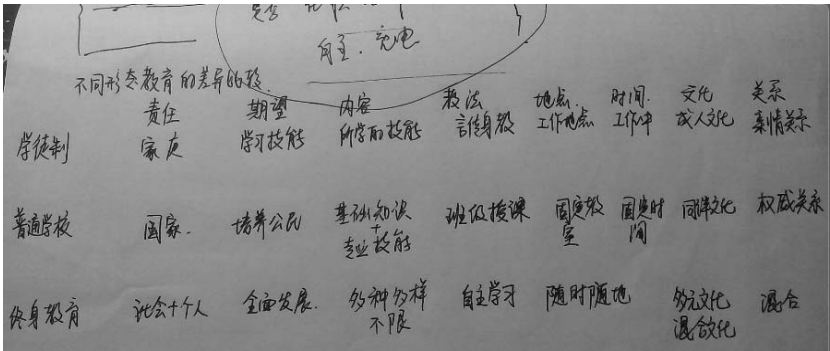 自主、充电
不同形态教育的差异比较.
责任 期望 内容 教法 地点. 时间. 文化 关系
学徒制 家庭 学习技能 所学的技能 言传身教 工作地点 工作中 成人文化 亲情关系
普通学校 国家. 培养公民 基础知识+专业技能 班级授课 固定教室 固定时间 同伴文化 权威关系
终身教育 社会+个人 全面发展. 多种多样不限 自主学习 随时随地 多元文化混合文化 混合